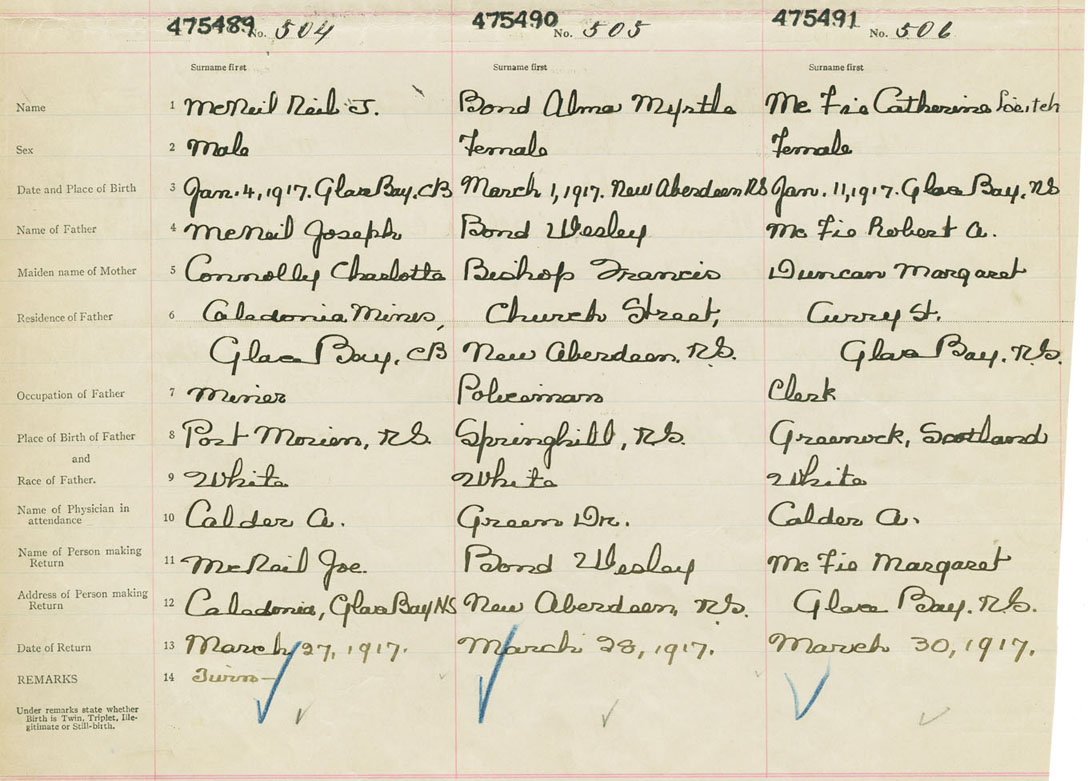 475489 No. 504 475490 No. 505 475491 No. 506
Surname first Surname first Surname first
Name 1 McNeil Neil J. Bond Alma Myrtle Mc Fie Catherine Leitch
Sex 2 Male Female Female
Date and Place of Birth 3 Jan. 4, 1917. Glace Bay, CB March 1, 1917. New Aberdeen NS Jan. 11, 1917. Glace Bay, NS
Name of Father 4 McNeil Joseph Bond Wesley Mc Fie Robert A.
Maiden name of Mother 5 Connolly Charlotte Bishop Francis Duncan Margaret
Residence of Father 6 Caledonia Mines, Church Street, Curry St.
Glace Bay, CB New Aberdeen, N.S. Glace Bay, N.S.
Occupation of Father 7 Miner Policeman Clerk
Place of Birth of Father 8 Port Morien, N.S. Springhill, N.S. Greenock, Scotland
and
Race of Father. 9 White White White
Name of Physician in
attendance 10 Calder A. Green Dr. Calder A.
Name of Person making
Return 11 McNeil Joe. Bond Wesley Mc Fie Margaret
Address of Person making
Return 12 Caledonia, Glace Bay NS New Aberdeen, N.S. Glace Bay, N.S.
Date of Return 13 March 27, 1917. March 28, 1917. March 30, 1917.
REMARKS 14 Twin
Under remarks state whether
Birth is Twin, Triplet, Ille-
gitimate or Still-birth.